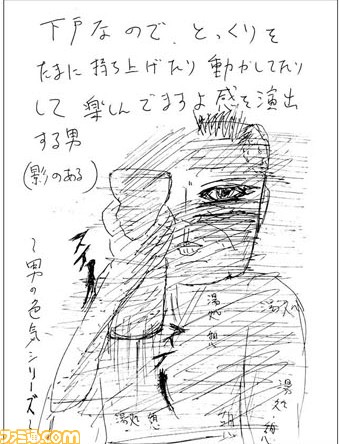 下戸なので、とっくりを
たまに持ち上げたり動かしてたり
して楽しんでますよ感を演出
する男
(影のある)
〜男の色気シリーズ〜
ズイー
ズイー
湯処
湯処
湯処
湯処
ファミ通.com